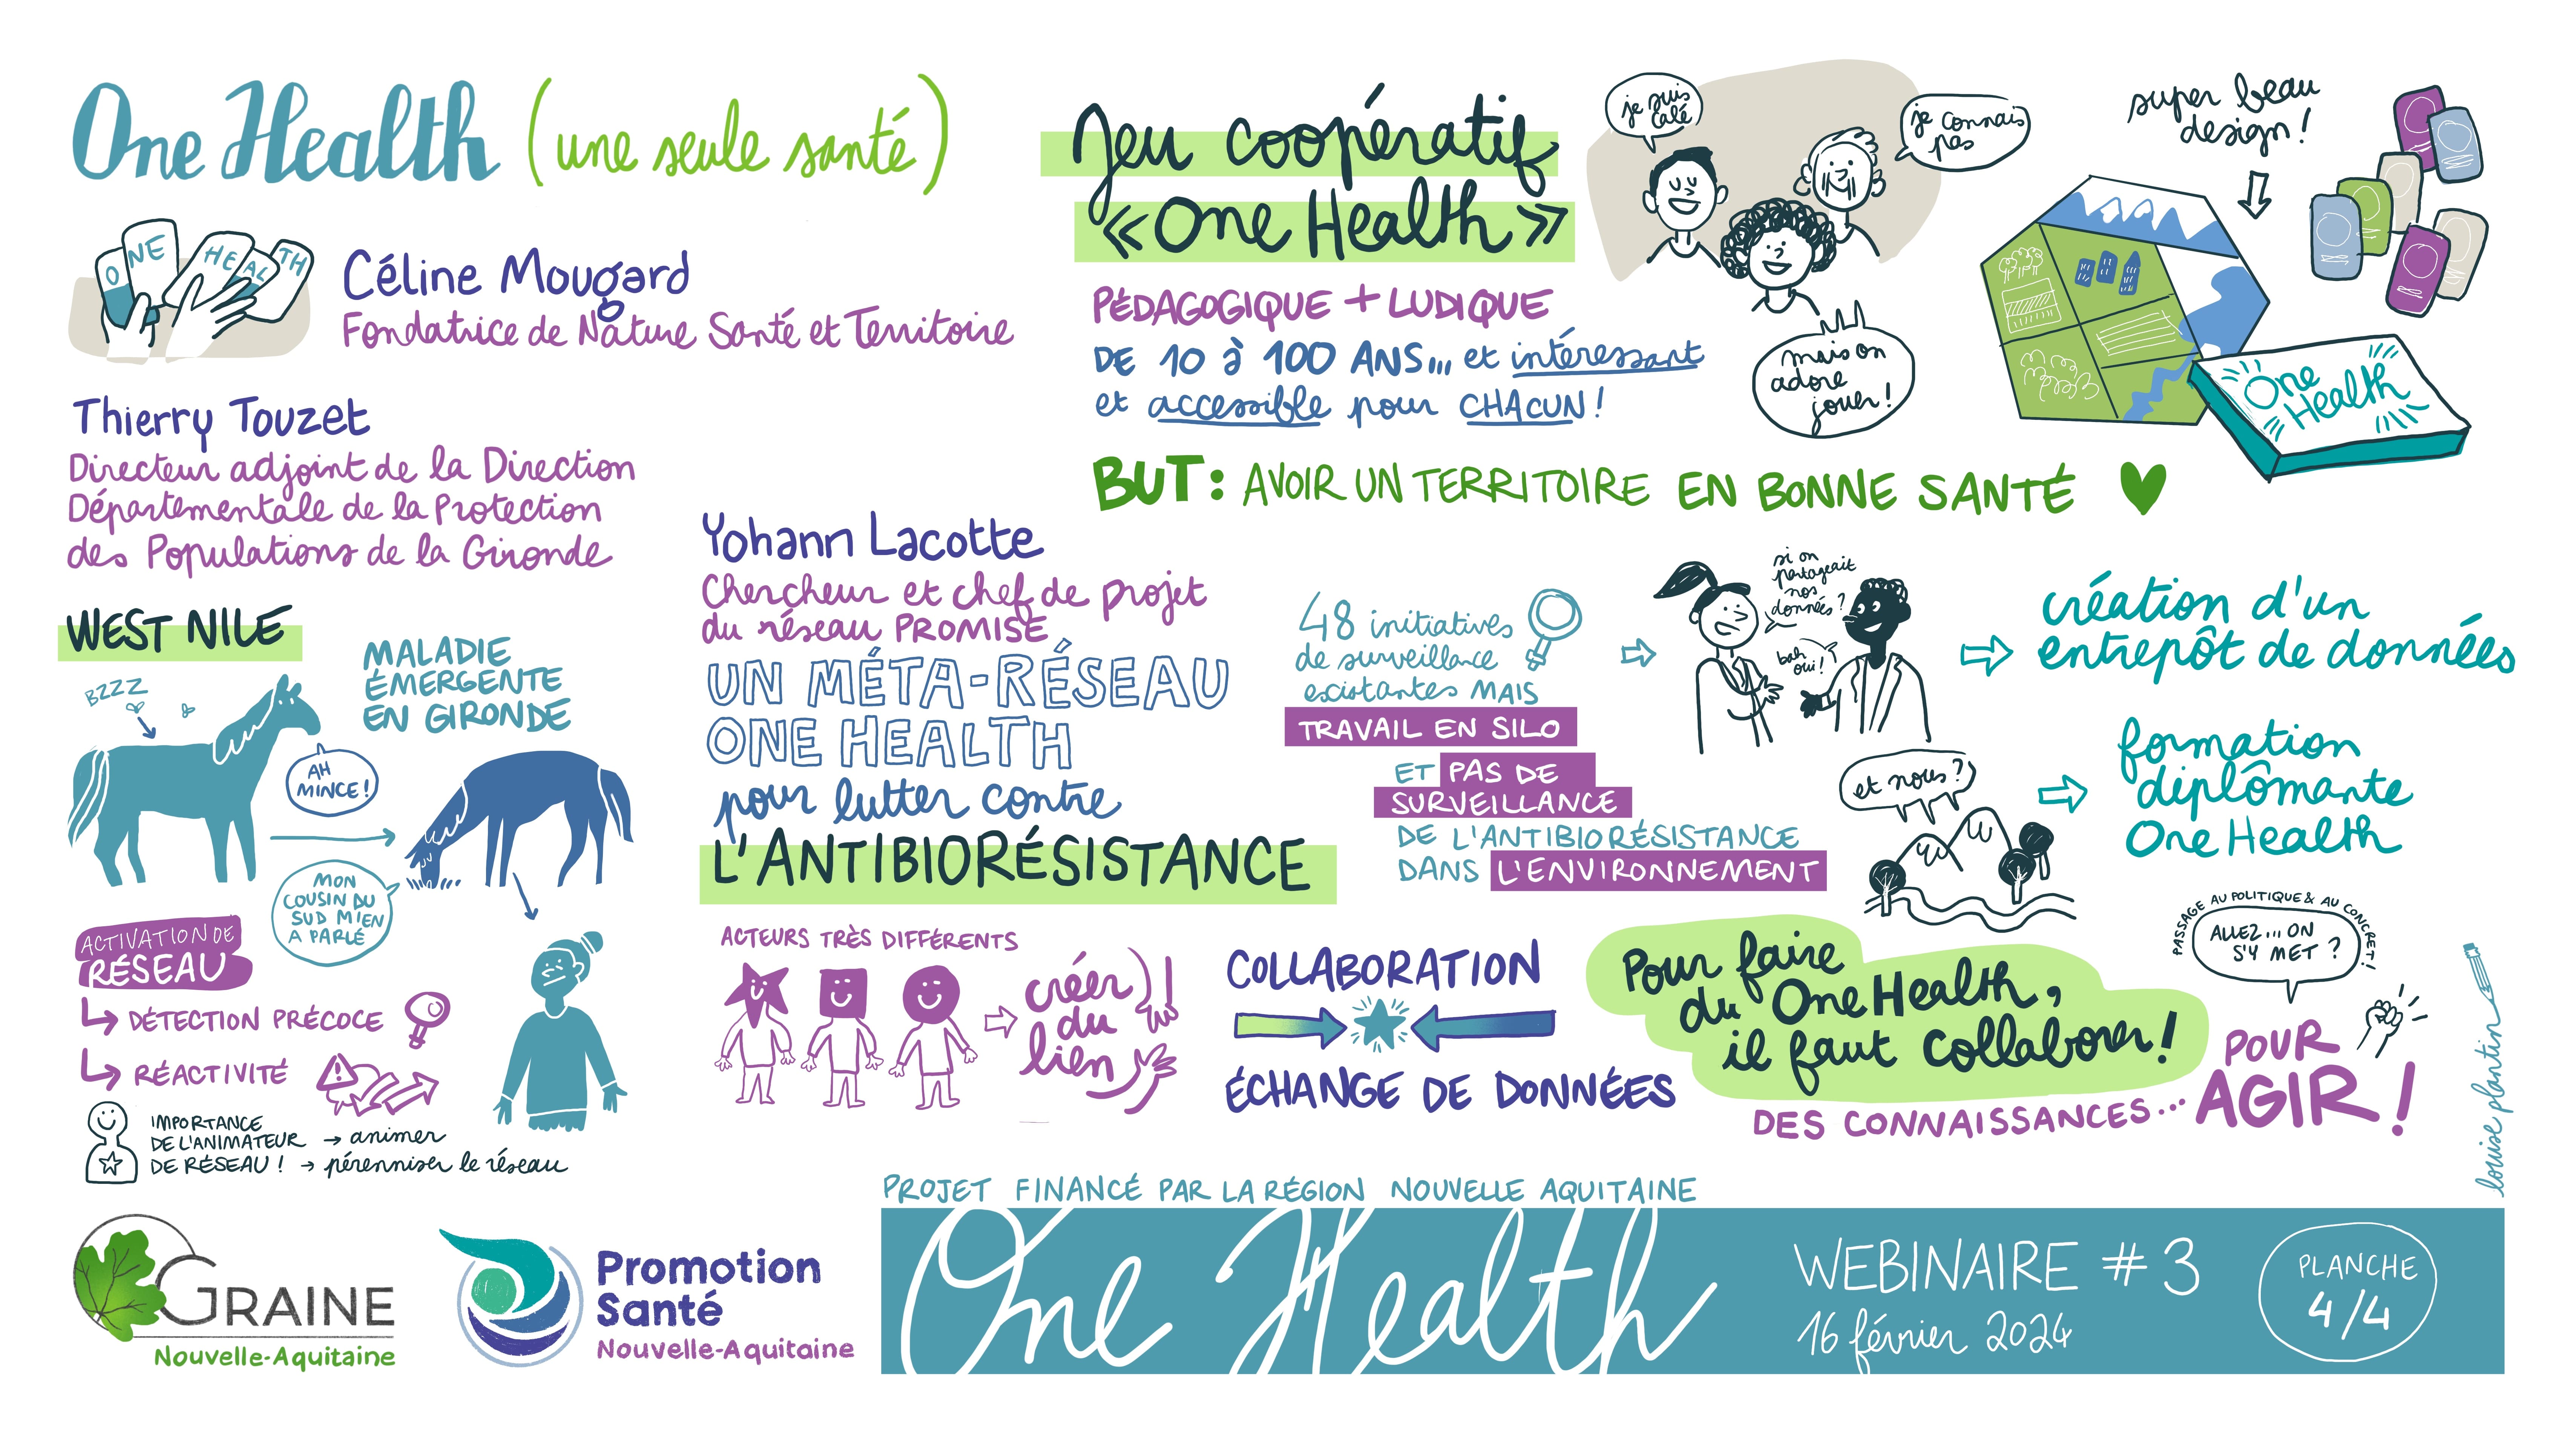 One Health (une seule santé)
ONE HEALTH
Céline Mougard
Fondatrice de Nature Santé et Territoire
Jeu coopératif
« One Health »
je suis
calé
je connais
pas
mais on
adore
jouer !
super beau
design !
One
Health
PÉDAGOGIQUE + LUDIQUE
DE 10 à 100 ANS... et intéressant
et accessible pour CHACUN !
BUT : AVOIR UN TERRITOIRE EN BONNE SANTÉ
Thierry Touzet
Directeur adjoint de la Direction
Départementale de la Protection
des Populations de la Gironde
WEST NILE
MALADIE
ÉMERGENTE
EN GIRONDE
BZZZ
AH
MINCE !
MON
COUSIN DU
SUD M'EN
A PARLÉ
ACTIVATION DE
RÉSEAU
DÉTECTION PRÉCOCE
RÉACTIVITÉ
IMPORTANCE
DE L'ANIMATEUR → animer
DE RÉSEAU ! → pérenniser le réseau
Yohann Lacotte
Chercheur et chef de projet
du réseau PROMISE
UN MÉTA-RÉSEAU
ONE HEALTH
pour lutter contre
L'ANTIBIORÉSISTANCE
48 initiatives
de surveillance
existantes MAIS
TRAVAIL EN SILO
ET PAS DE
SURVEILLANCE
DE L'ANTIBIORÉSISTANCE
DANS L'ENVIRONNEMENT
si on
partageait
nos
données ?
bah
oui !
création d'un
entrepôt de données
et nous ?
formation
diplômante
One Health
ACTEURS TRÈS DIFFÉRENTS
créer
du
lien
COLLABORATION
ÉCHANGE DE DONNÉES
Pour faire
du One Health,
il faut collaborer !
DES CONNAISSANCES...
PASSAGE AU POLITIQUE & AU CONCRET !
ALLEZ... ON
S'Y MET ?
POUR
AGIR !
louise plantin
PROJET FINANCÉ PAR LA RÉGION NOUVELLE AQUITAINE
GRAINE
Nouvelle-Aquitaine
Promotion
Santé
Nouvelle-Aquitaine
One Health
WEBINAIRE #3
16 février 2024
PLANCHE
4/4